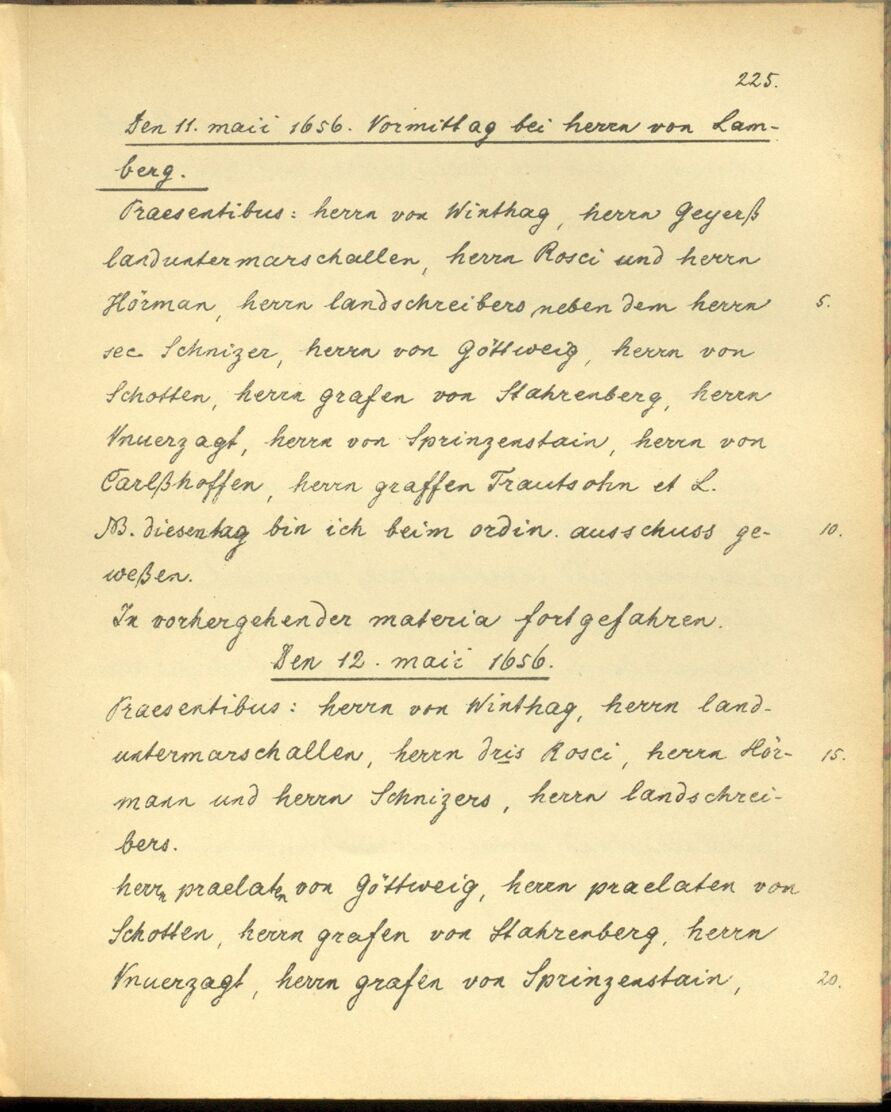 225.
Den 11. maii 1656. Vormittag bei herrn von Lam-
berg.
Praesentibus: herrn von Winthag, herrn Geyerß
landuntermarschallen, herrn Rosci und herrn
Hörman, herrn landschreibers neben dem herrn 5.
sec. Schnizer, herrn von Göttweig, herrn von
Schotten, herrn grafen von Stahrenberg, herrn
Vnuerzagt, herrn von Sprinzenstain, herrn von
Carlßhoffen, herrn graffen Trautsohn et L.
NB. diesen tag bin ich beim ordin. ausschuss ge- 10.
weßen.
In vorhergehender materia fortgefahren.
Den 12. maii 1656.
Praesentibus: herrn von Winthag, herrn land-
untermarschallen, herrn dris Rosci, herrn Hör- 15.
mann und herrn Schnizers, herrn landschrei-
bers.
herrn praelaten von Göttweig, herrn praelaten von
Schotten, herrn grafen von Stahrenberg, herrn
Vnuerzagt, herrn grafen von Sprinzenstain, 20.